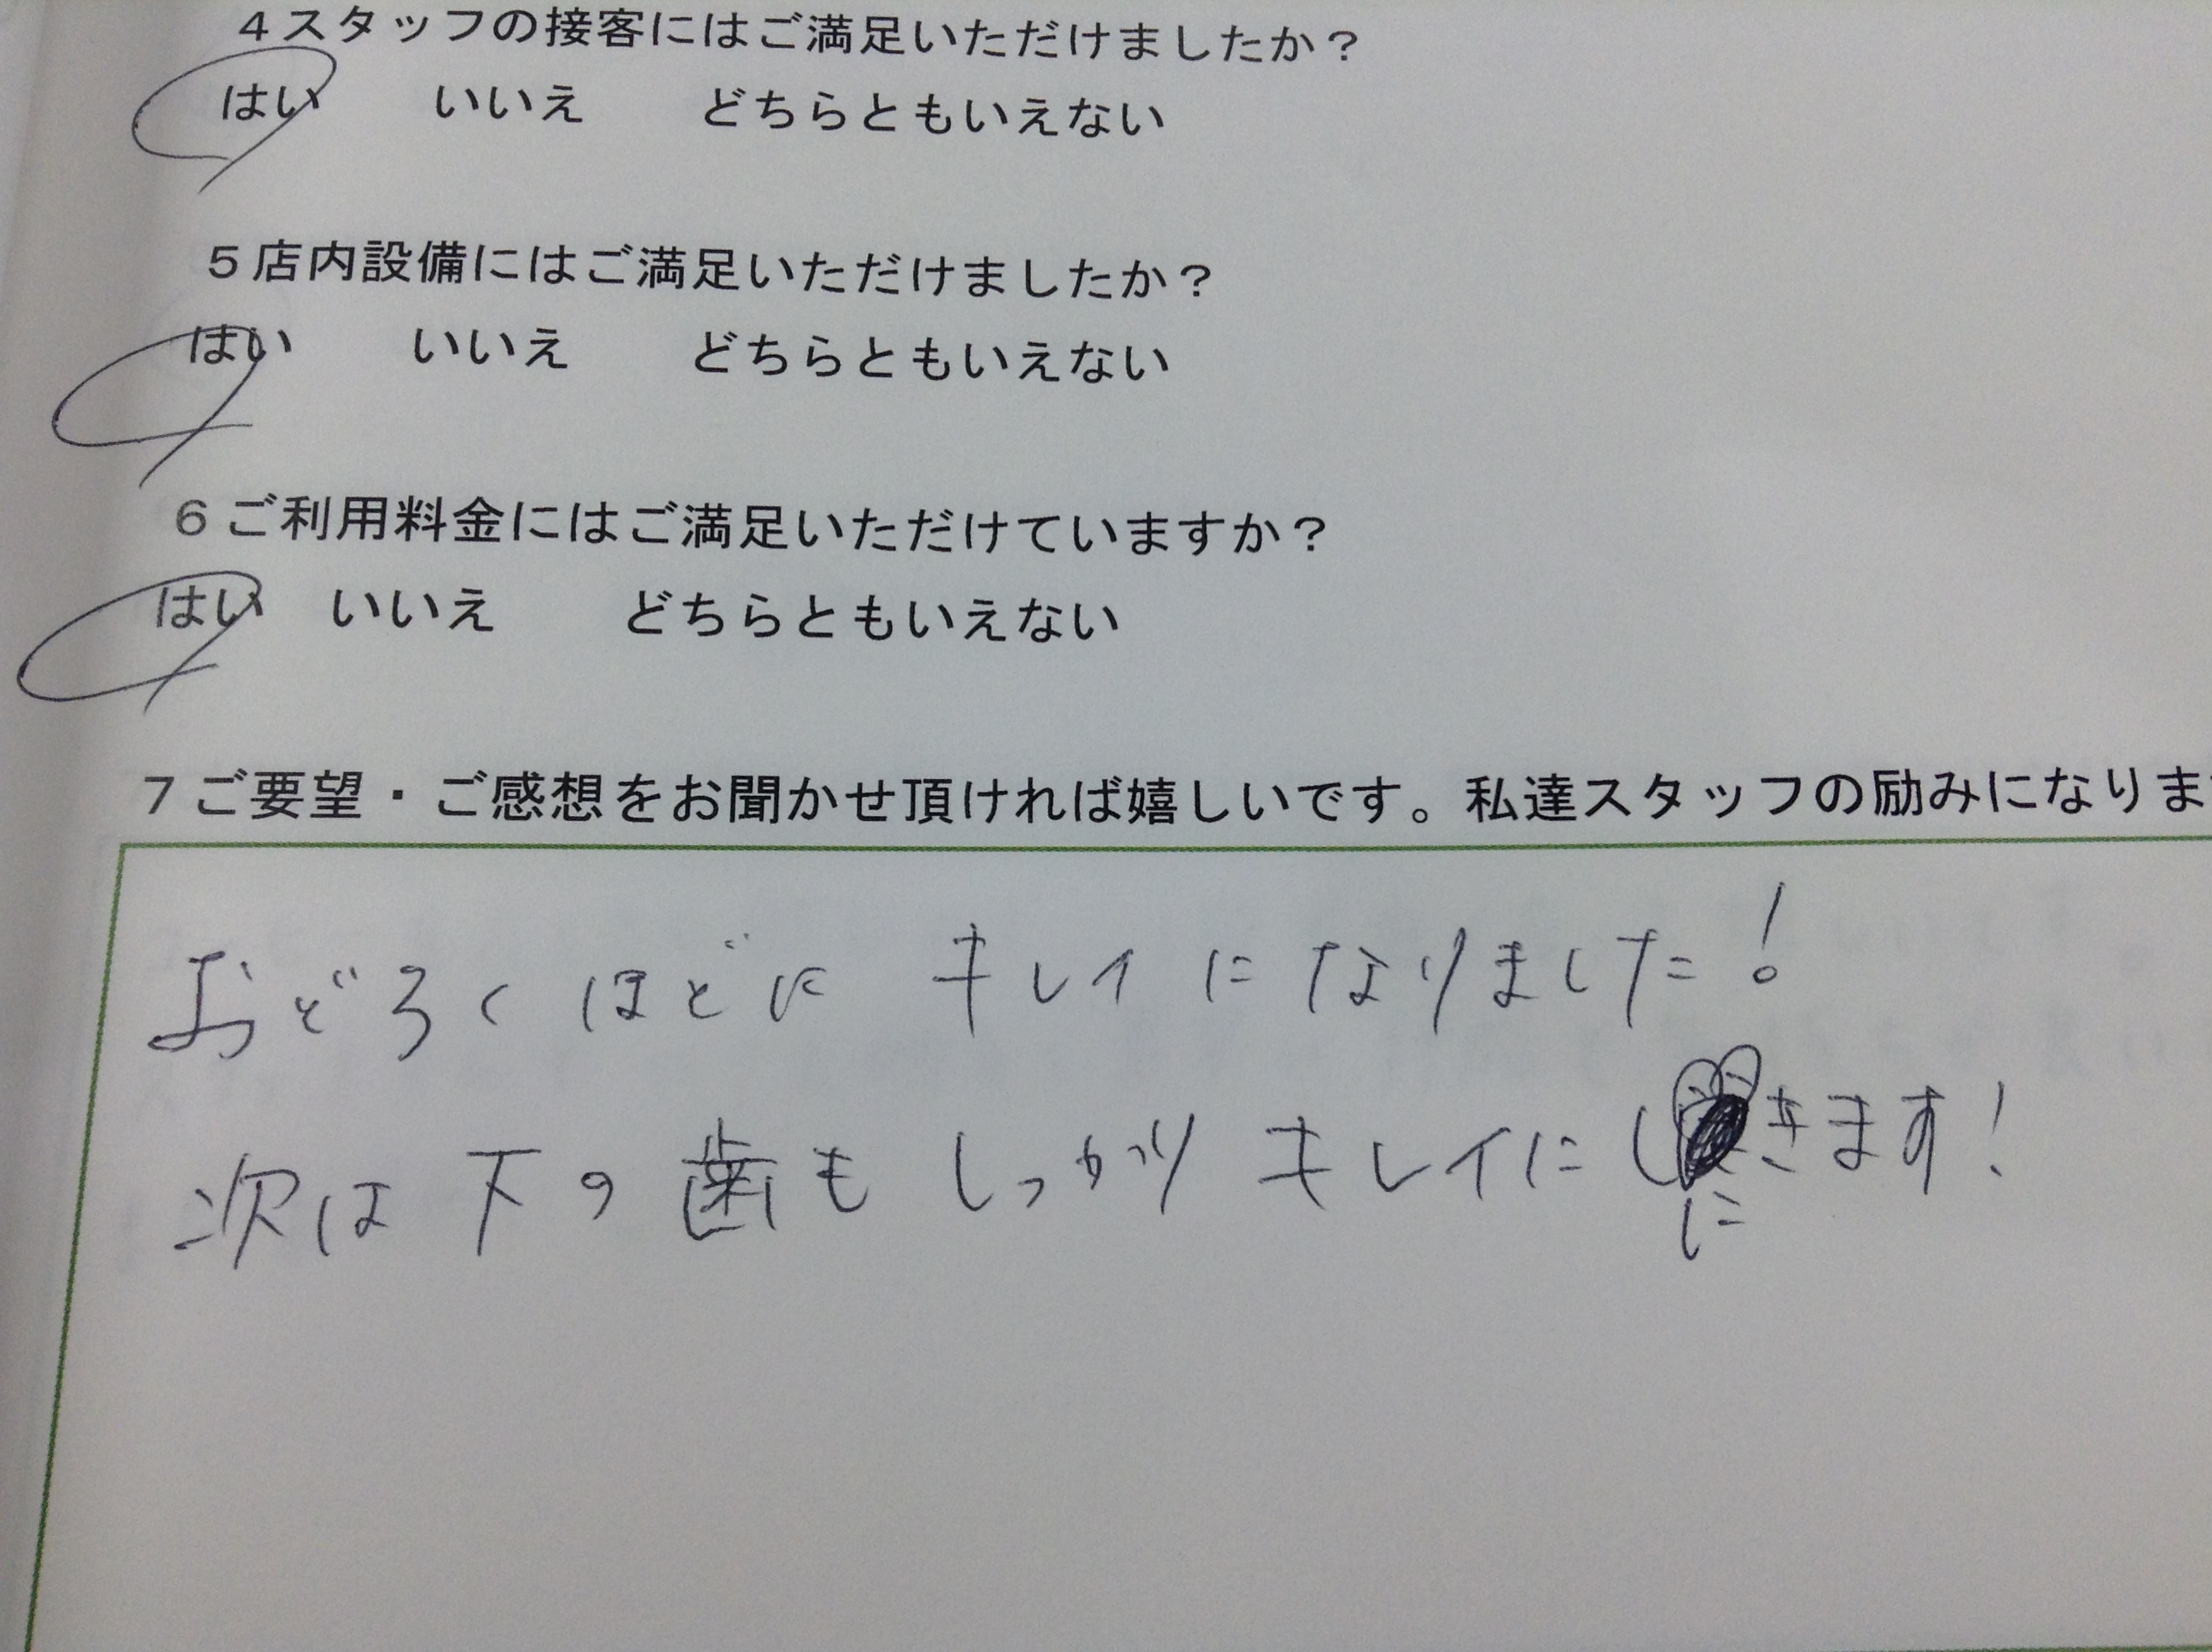 4スタッフの接客にはご満足いただけましたか？
はい いいえ どちらともいえない
5店内設備にはご満足いただけましたか？
はい いいえ どちらともいえない
6ご利用料金にはご満足いただけていますか？
はい いいえ どちらともいえない
7ご要望・ご感想をお聞かせ頂ければ嬉しいです。私達スタッフの励みになりま
おどろくほどに キレイになりました！
次は下の歯もしっかりキレイにしにきます！